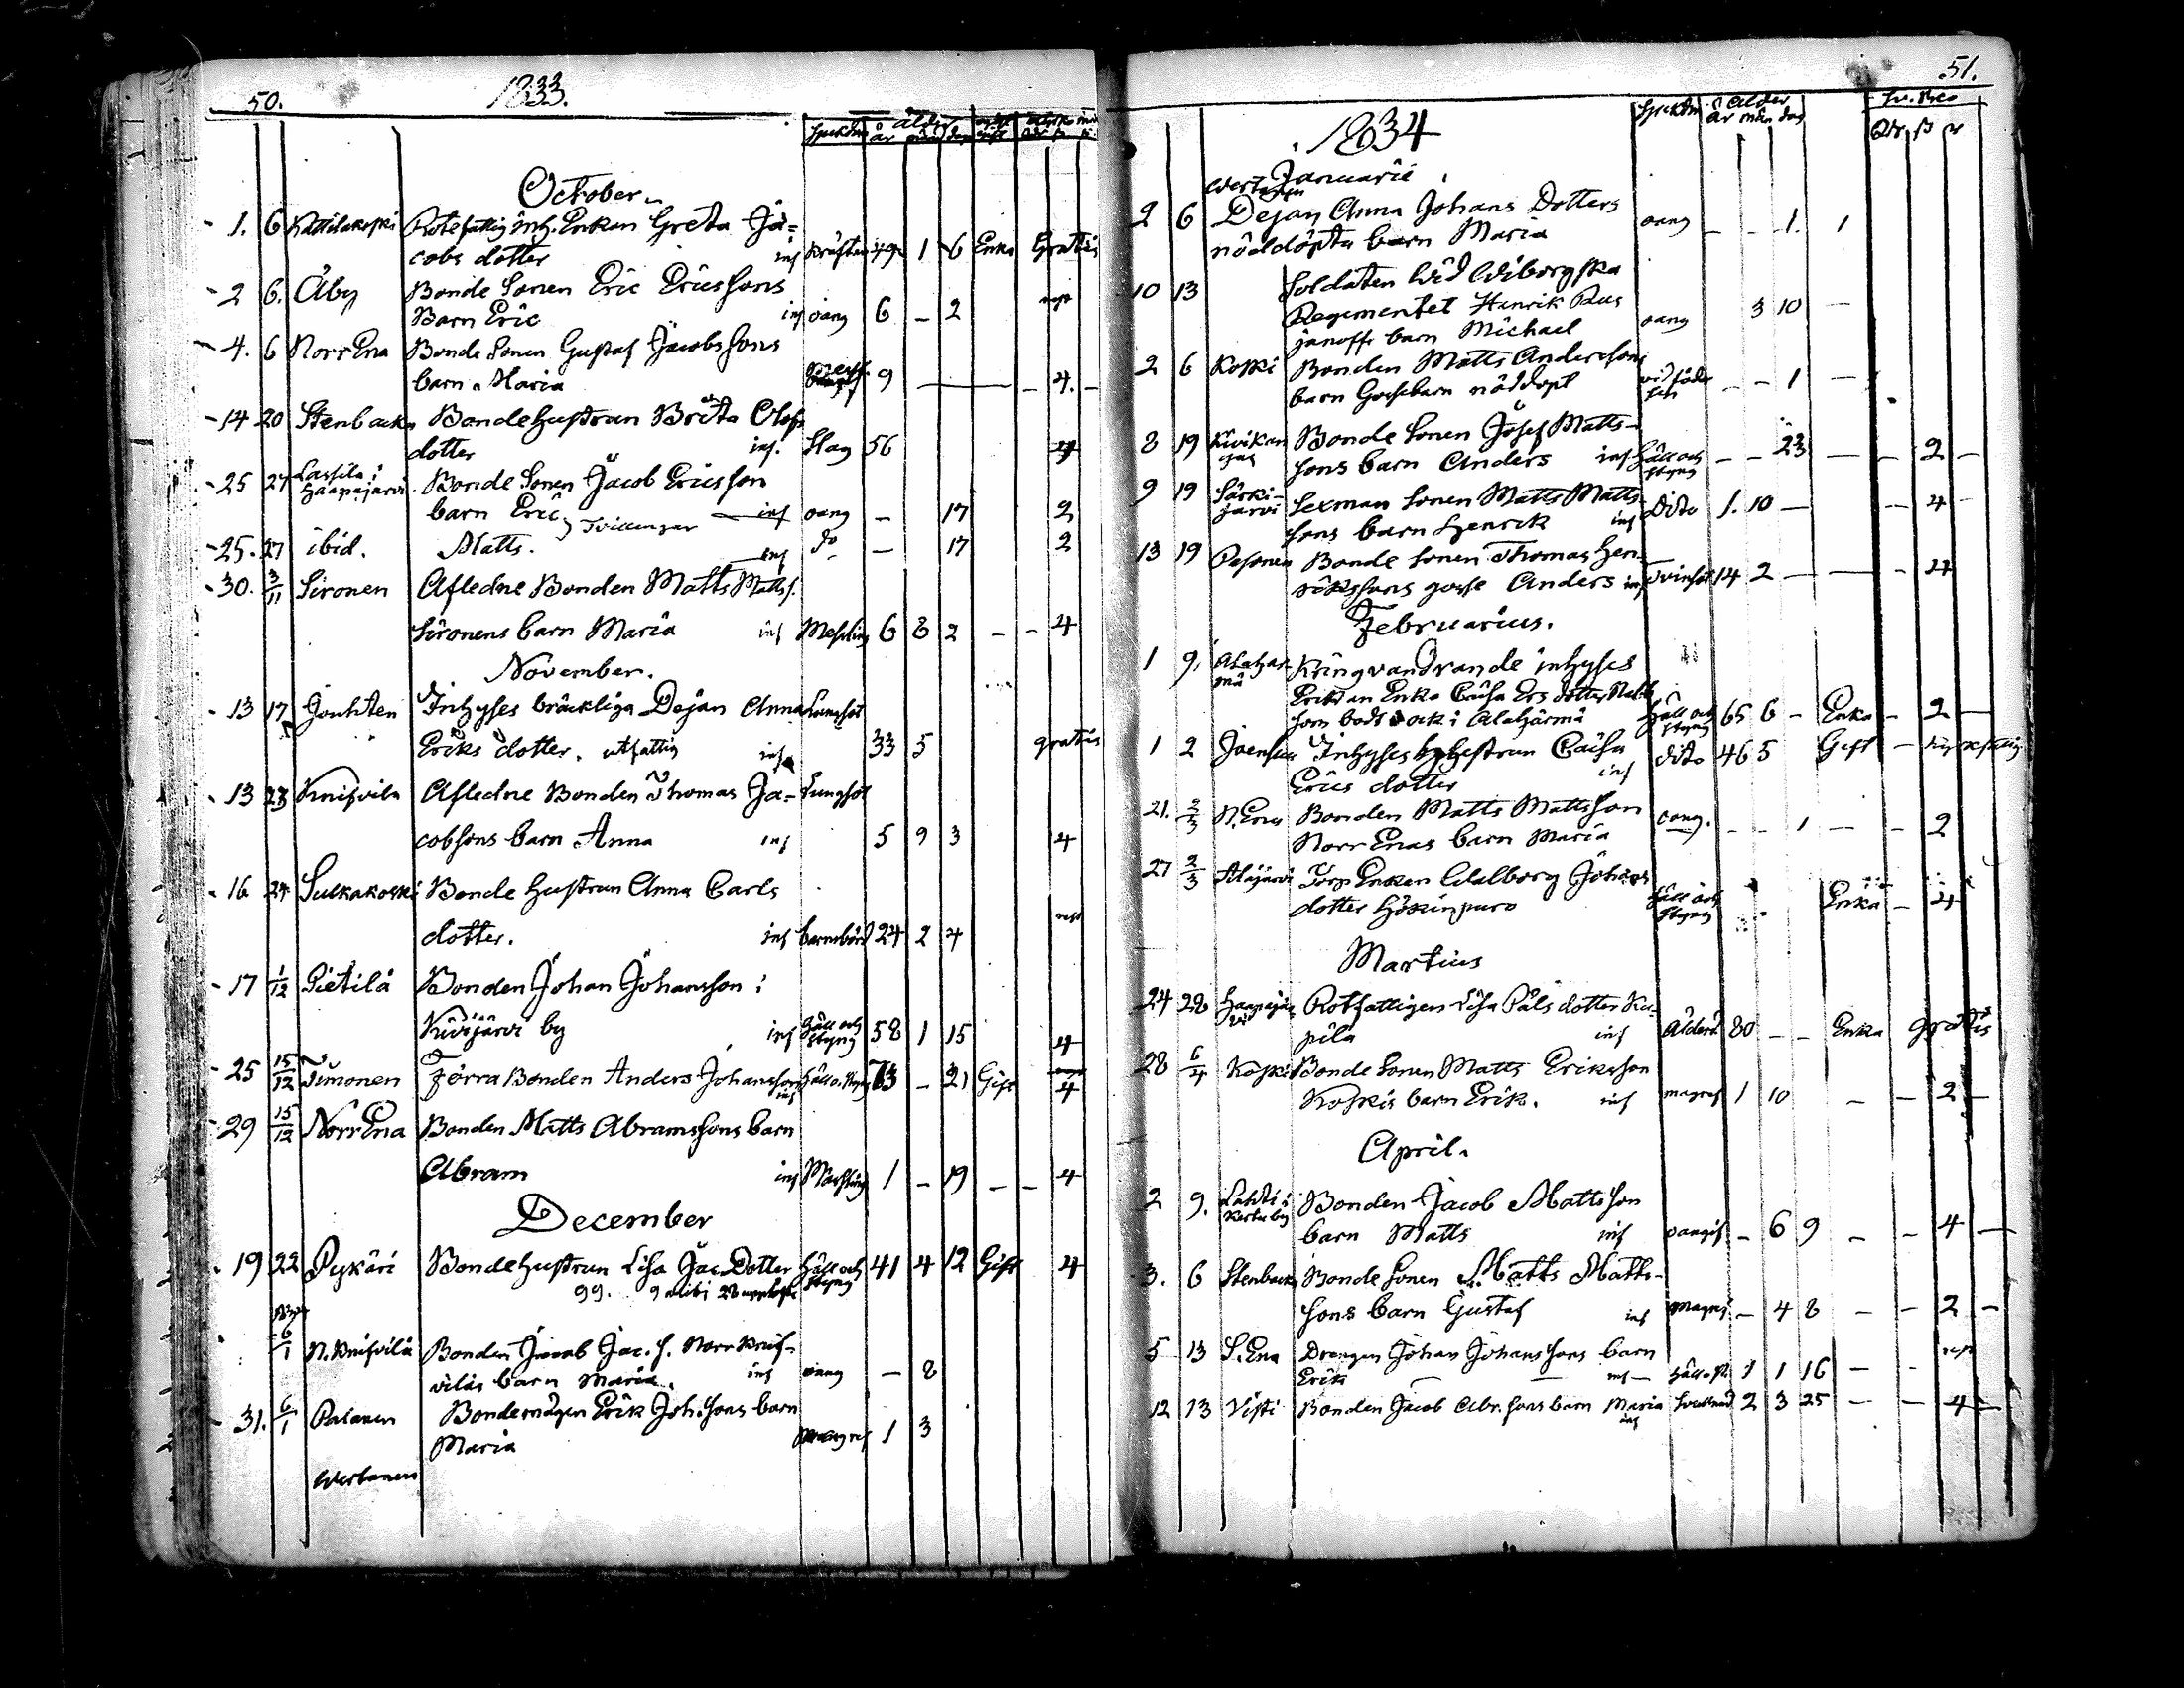 50. 1833.
Sjukdom ålder
år mån dag gift
October.
1. 6 Kattilakoski Rotefattig inh. Enkan Greta Ja=
cobs dotter inf Kräftan 49 1 6 Enka Gratis
2 6. Åby Bonde Sonen Eric Ericssons
Barn Eric inf oang 6 – 2
4. 6 NorrEna Bonde Sonen Gustaf Jacobssons
barn Maria 9 – 4. –
14 20 Stenbacka Bondehustrun Brita Olofs
dotter inf. Slag 56 4
25 27 Lassila i Haapajärvi Bonde Sonen Jacob Ericsson
barn Eric, Tvillingar inf oang – 17 2
25. 27 ibid. Matts. inf do – 17 2
30. 3/11 Sironen Afledne Bonden Matts Mattss.
Sironens barn Maria inf Messling 6 8 2 – – 4
November.
13 17 Jouhten Inhyses bräckliga Dejan Anna Lungsot
Eriks dotter. utfattig inf 33 5 gratis
13 23 Knifvila Afledne Bonden Thomas Ja= Lungsot
cobsons barn Anna inf 5 9 3 4
16 24 Sulkakoski Bonde hustrun Anna Carls
dotter. inf barnsbörd 24 2 4
17 1/12 Pietilä Bonden Johan Johansson i
Kivijärvi by inf Håll och styng 58 1 15 4
25 15/12 Timonen Förra Bonden Anders Johansson inf Håll o. styng 73 – 21 Gift 4
29 15/12 NorrEna Bonden Matts Abramssons barn
Abram inf Mässling 1 – 19 – – 4
December
19 22 Pykäri Bondehustrun Lisa Jac. Dotter Håll och styng 41 4 12 Gift 4
99. 9 alibi
6/1 N. Knifvilä Bonden Jacob Jac. s. Norr Knif-
viläs barn Maria. inf oang – 8
31. 6/1 Palanen Bondemågen Erik Joh. sons barn
Maria 1 3
51.
1834
Sjukdom Ålder
år mån dag
Januarii
2 6 Dejan Anna Johans Dotters
nöddöpta barn Maria oang – – 1. 1
10 13 Soldaten wid Wiborgska
Regementet Henrik
barn Michael oang 3 10 –
2 6 Koski Bonden Matts Anderssons
barn Gossebarn nöddöpt – – 1 –
8 19 Bonde Sonen Josef Matts-
sons barn Anders inf Håll och styng – – 23 – – 2 –
9 19 Särki-
järvi Sexman Sonen Matts Matts-
sons barn Henrik inf Dito 1. 10 – – 4 –
13 19 Pesonen Bonde Sonen Thomas Hen-
rikssons gosse Anders inf 14 2 – – – 24
Februarius.
1 9. Alahär-
mä Kringvandrande inhyses
Enka Caisa Ers dotter
som bodt ock i Alahärmä Håll och styng 65 6 – Enka – 2 –
1 2 Joensuu Inhyses hustrun Caisa
Erics dotter inf dito 46 5 Gift –
21. 2/3 N. Ena Bonden Matts Mattsson
NorrEnas barn Maria oang. – – 1 – – 2
27 2/3 Alajärvi Torp Enkan Walborg Johans
dotter Hökinpuro Håll och styng Enka – 4
Martius
24 28 Haapajär-
vi Rotfattigen Lisa Påls dotter
inf Ålderd. 80 – – Enka gratis
28 6/4 Koski Bonde Sonen Matts Eriksson
Koskis barn Erik. inf magref 1 10 – – 2 –
April.
2 9. Lahti i
Bonden Jacob Mattsson
barn Matts inf oangif. – 6 9 – – 4 –
3. 6 Stenbacka Bonde Sonen Matts Matts-
sons barn Gustaf inf magref – 4 8 – – 2 –
5 13 S. Ena Drengen Johan Johanssons barn
Erik inf Håll o. st. 1 1 16 – –
12 13 Visti Bonden Jacob Abr. sons barn Maria inf 2 3 25 – – 4 –